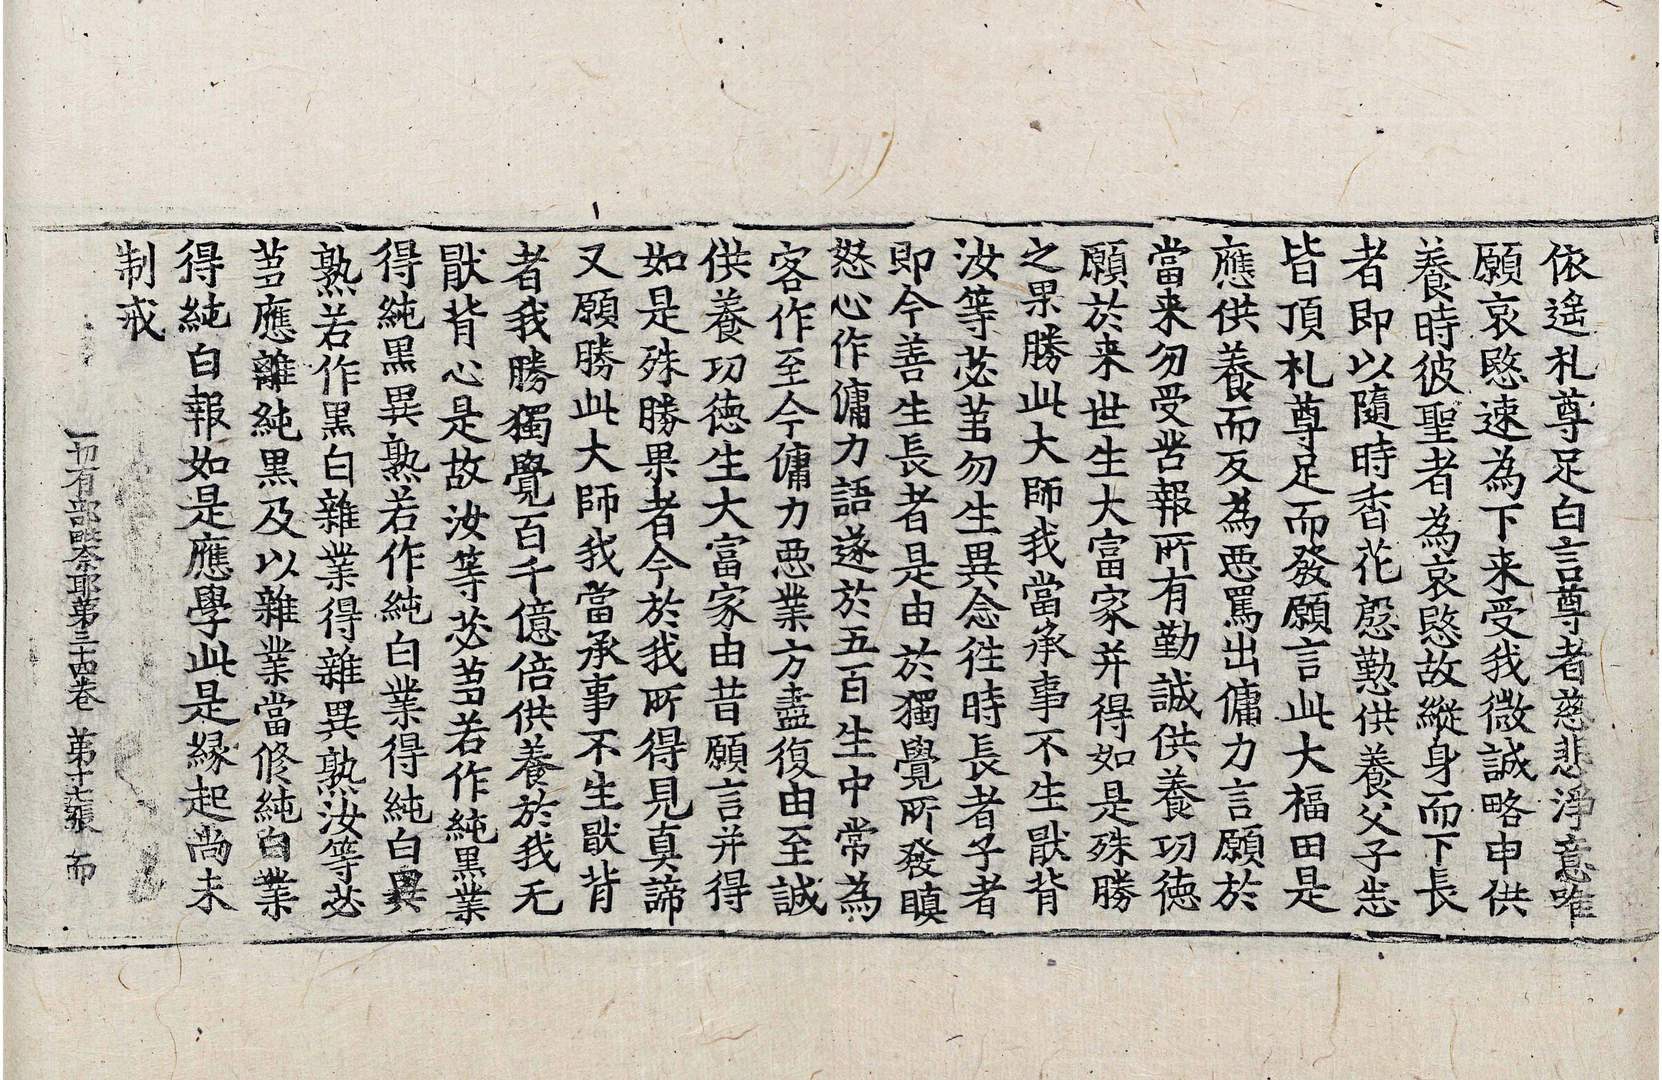 依遙礼尊足白言尊者慈悲淨意唯
願哀愍速為下来受我微誠略申供
養時彼聖者為哀愍故縱身而下長
者即以隨時香花慇懃供養父子悲
皆頂礼尊足而發願言此大福田是
應供養而反為惡罵出傭力言願於
當来勿受苦報所有勤誠供養功徳
願於来世生大富家并得如是殊勝
之果勝此大師我當承事不生猒背
汝等苾芻勿生異念往時長者子者
即今善生長者是由於獨覺所發瞋
怒心作傭力語遂於五百生中常為
客作至今傭力惡業方盡復由至誠
供養功徳生大富家由昔願言并得
如是殊勝果者今於我所得見真諦
又願勝此大師我當承事不生猒背
者我勝獨覺百千億倍供養於我无
猒背心是故汝等苾芻若作純黑業
得純黑異熟若作純白業得純白異
熟若作黑白雜業得雜異熟汝等苾
芻應離純黑及以雜業當修純白業
得純白報如是應學此是緣起尚未
制戒
一切有部毗奈耶第三十四卷 第十七張 而